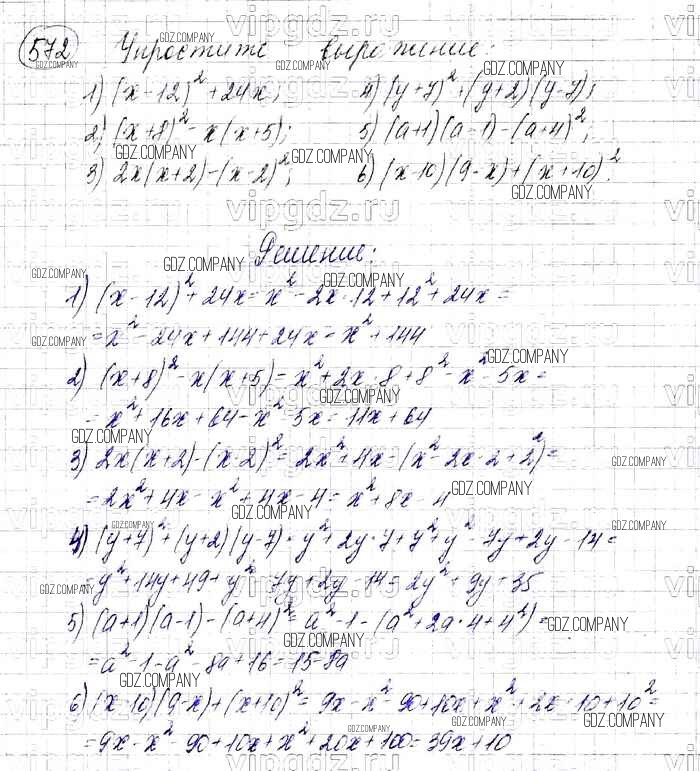 572 Упростите выражение:
1) (x-12)² + 24x; 4) (y+7)² + (y+2)(y-7);
2) (x+8)² - x(x+5); 5) (a+1)(a-1) - (a+4)²;
3) 2x(x+2) - (x-2)²; 6) (x-10)(9-x) + (x+10)².
Решение:
1) (x-12)² + 24x = x² - 2x·12 + 12² + 24x =
= x² - 24x + 144 + 24x = x² + 144
2) (x+8)² - x(x+5) = x² + 2x·8 + 8² - x² - 5x =
= x² + 16x + 64 - x² - 5x = 11x + 64
3) 2x(x+2) - (x-2)² = 2x² + 4x - (x² - 2x·2 + 2²) =
= 2x² + 4x - x² + 4x - 4 = x² + 8x - 4
4) (y+7)² + (y+2)(y-7) = y² + 2y·7 + 7² + y² - 7y + 2y - 14 =
= y² + 14y + 49 + y² - 7y + 2y - 14 = 2y² + 9y + 35
5) (a+1)(a-1) - (a+4)² = a² - 1 - (a² + 2a·4 + 4²) =
= a² - 1 - a² - 8a + 16 = 15 - 8a
6) (x-10)(9-x) + (x+10)² = 9x - x² - 90 + 10x + x² + 2x·10 + 10² =
= 9x - x² - 90 + 10x + x² + 20x + 100 = 39x + 10
vipgdz.ru
GDZ.COMPANY